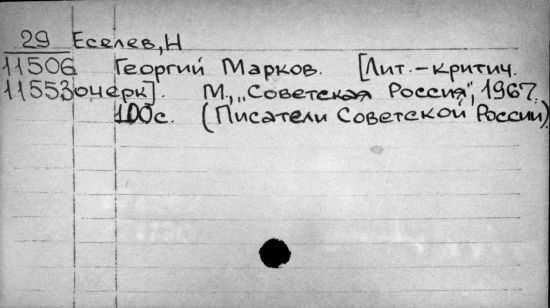 29 Еселев, Н
11506 Георгий Марков. [Лит.-критич.
11553 очерк]. М., „Советская Россия", 1967.
100с. (Писатели Советской России)